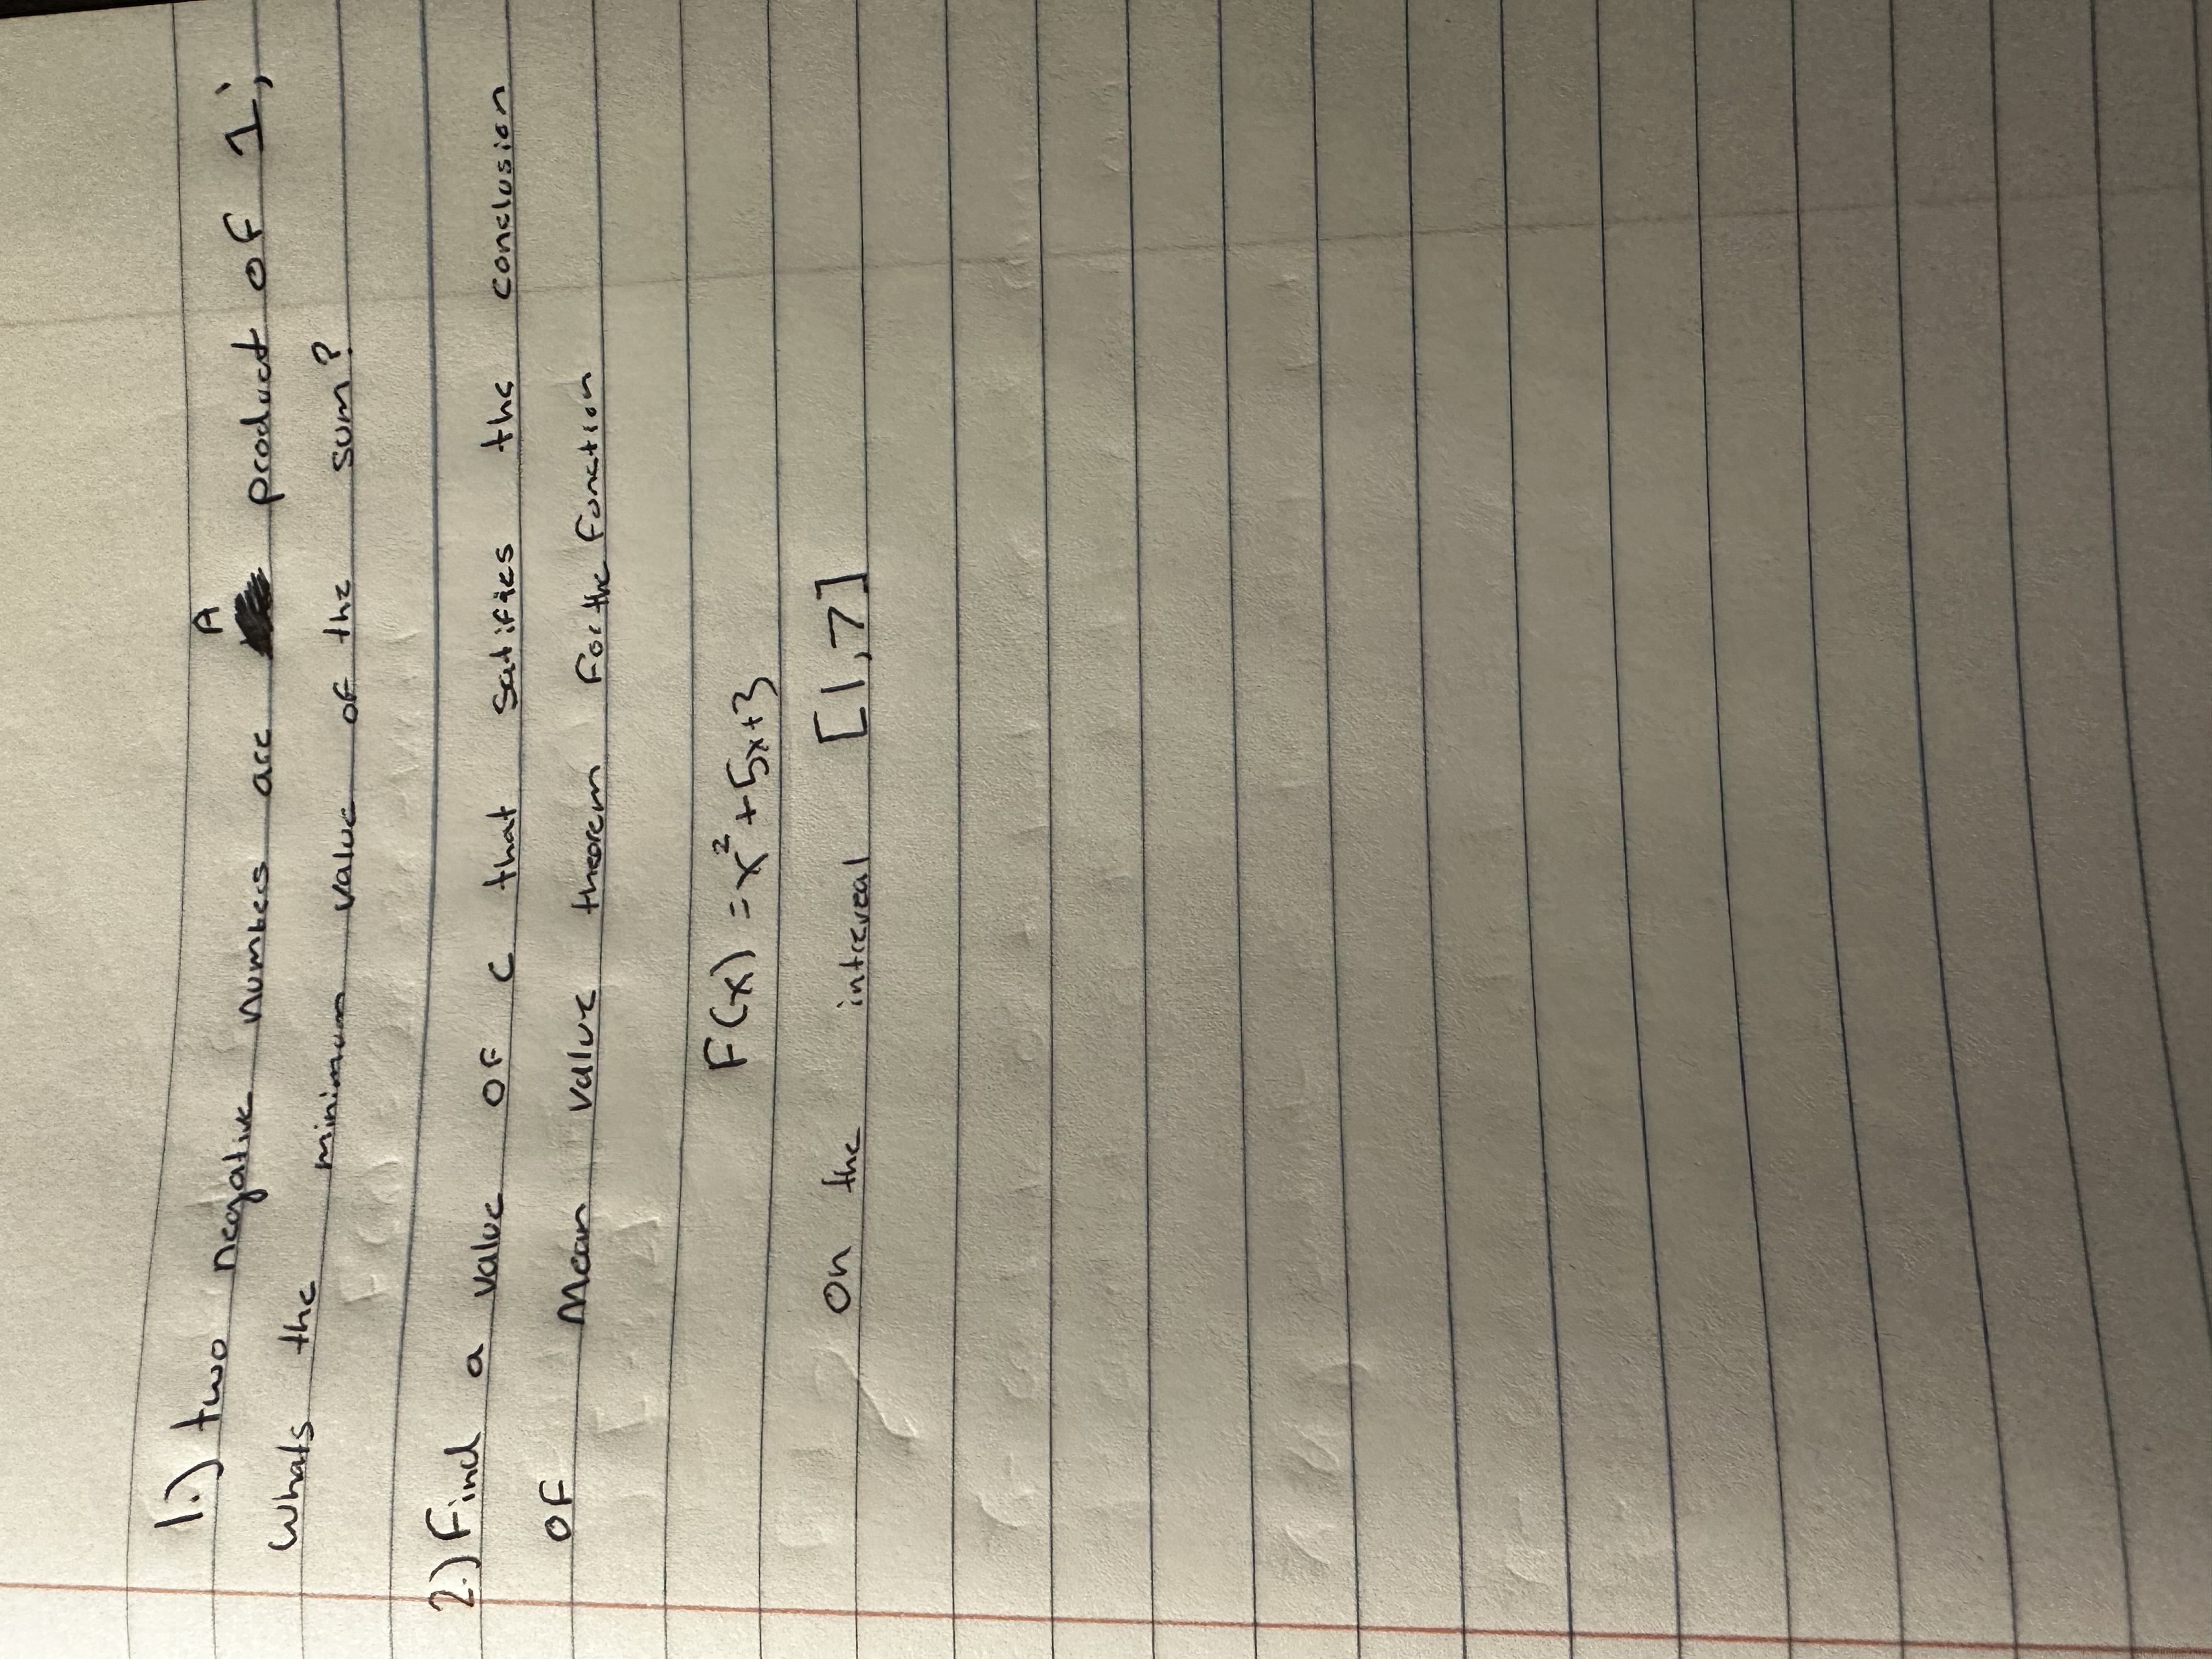 1.) two negative numbers are A product of 1;
whats the minimum value of the sum?
2.) Find a value of c that satifies the conclusion
of Mean value theorem for the function
F(x) = x² + 5x+3
on the intreval [1,7]